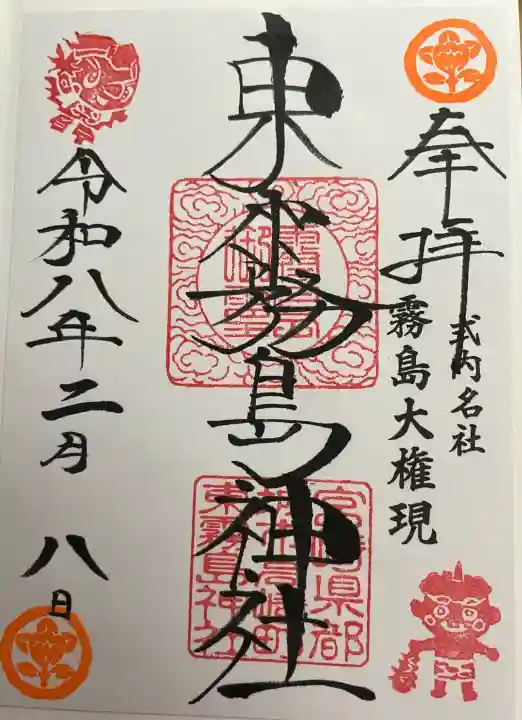 奉拝
式内名社
霧島大権現
東霧島神社
宮崎県都
城市高崎町
東霧島神社
令和八年二月
八日